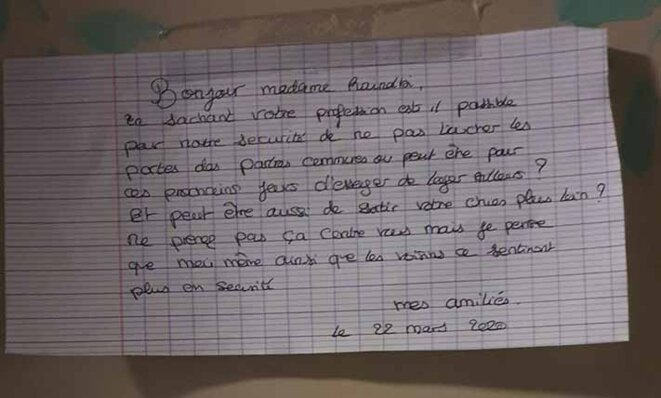 Bonjour madame
en sachant votre profession est il possible
par notre securité de ne pas toucher les
portes des parties communes ou peut être pour
ces prochains jours d'essayer de loger ailleurs ?
et peut être aussi de sortir votre chien plus loin ?
ne prenez pas ça contre vous mais je pense
que moi même ainsi que les voisins ce sentiront
plus en securité
mes amitiés.
le 22 mars 2020